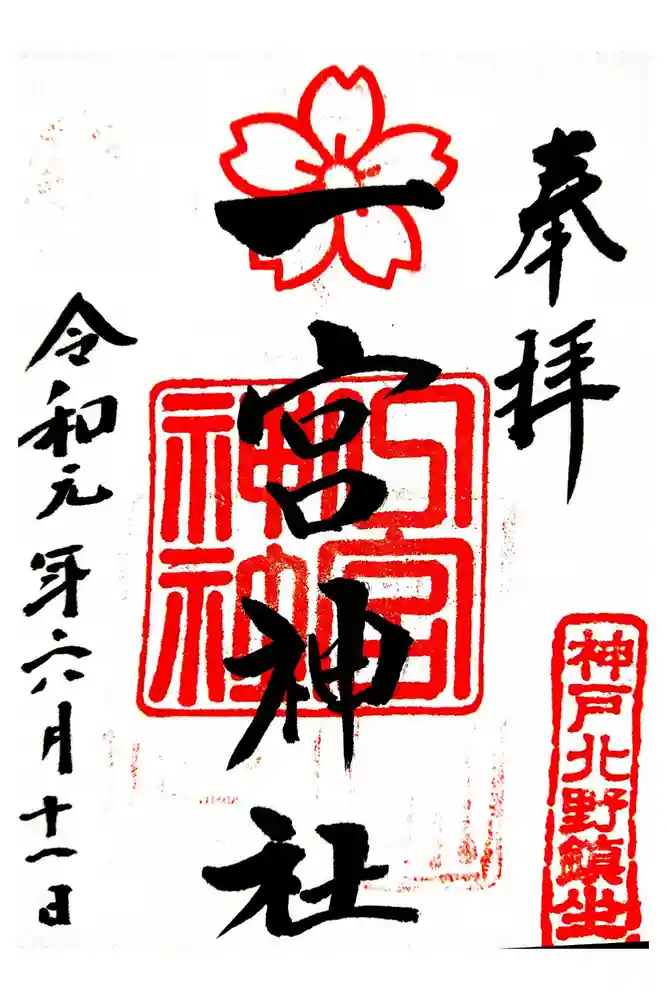 奉拝
神戸北野鎮坐
一宮神社
令和元年六月十一日